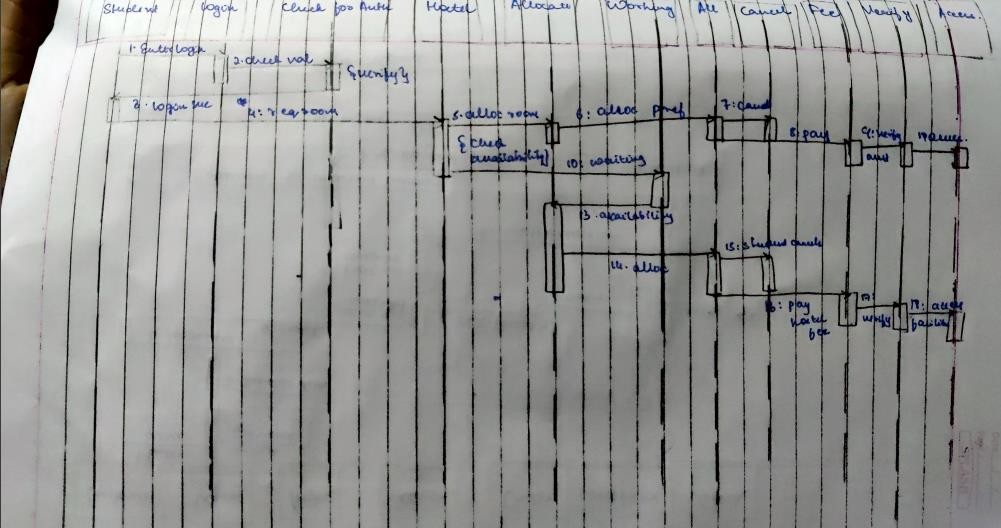 Student Login Check for Auth Hostel Allocate Working All Cancel Fee Verify Access.
1. Enter login
2. check val
{verify}
3. logon suc
4: req room
5. alloc room
{check
availability}
6: alloc pref
7: cancel
8: pay
9: verify
amt
10: waiting
13. availability
14. alloc
15: student cancels
16: pay
hostel
fee
17:
verify
18: access
facility